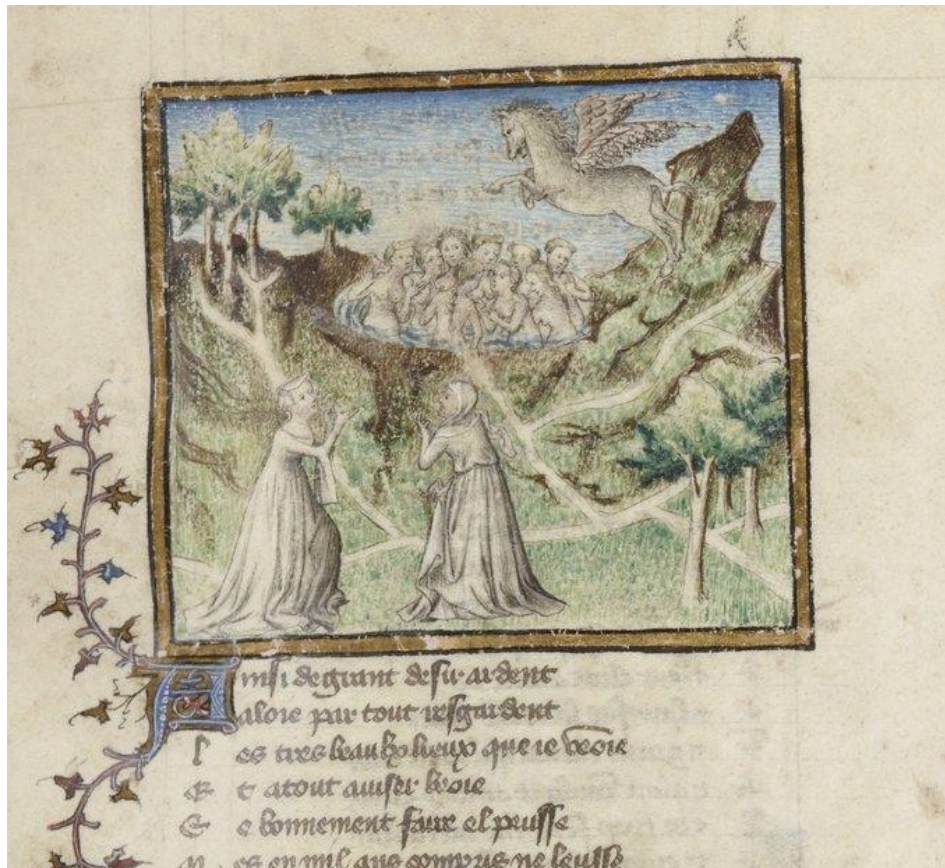 Ainsi de grant desir ardent
aloie par tout resgardent
Les tres beaulx lieux que ie veoie
Et atout auiser beoie
Se bonnement faire el peusse
Mes en mil ans compris ne leusse